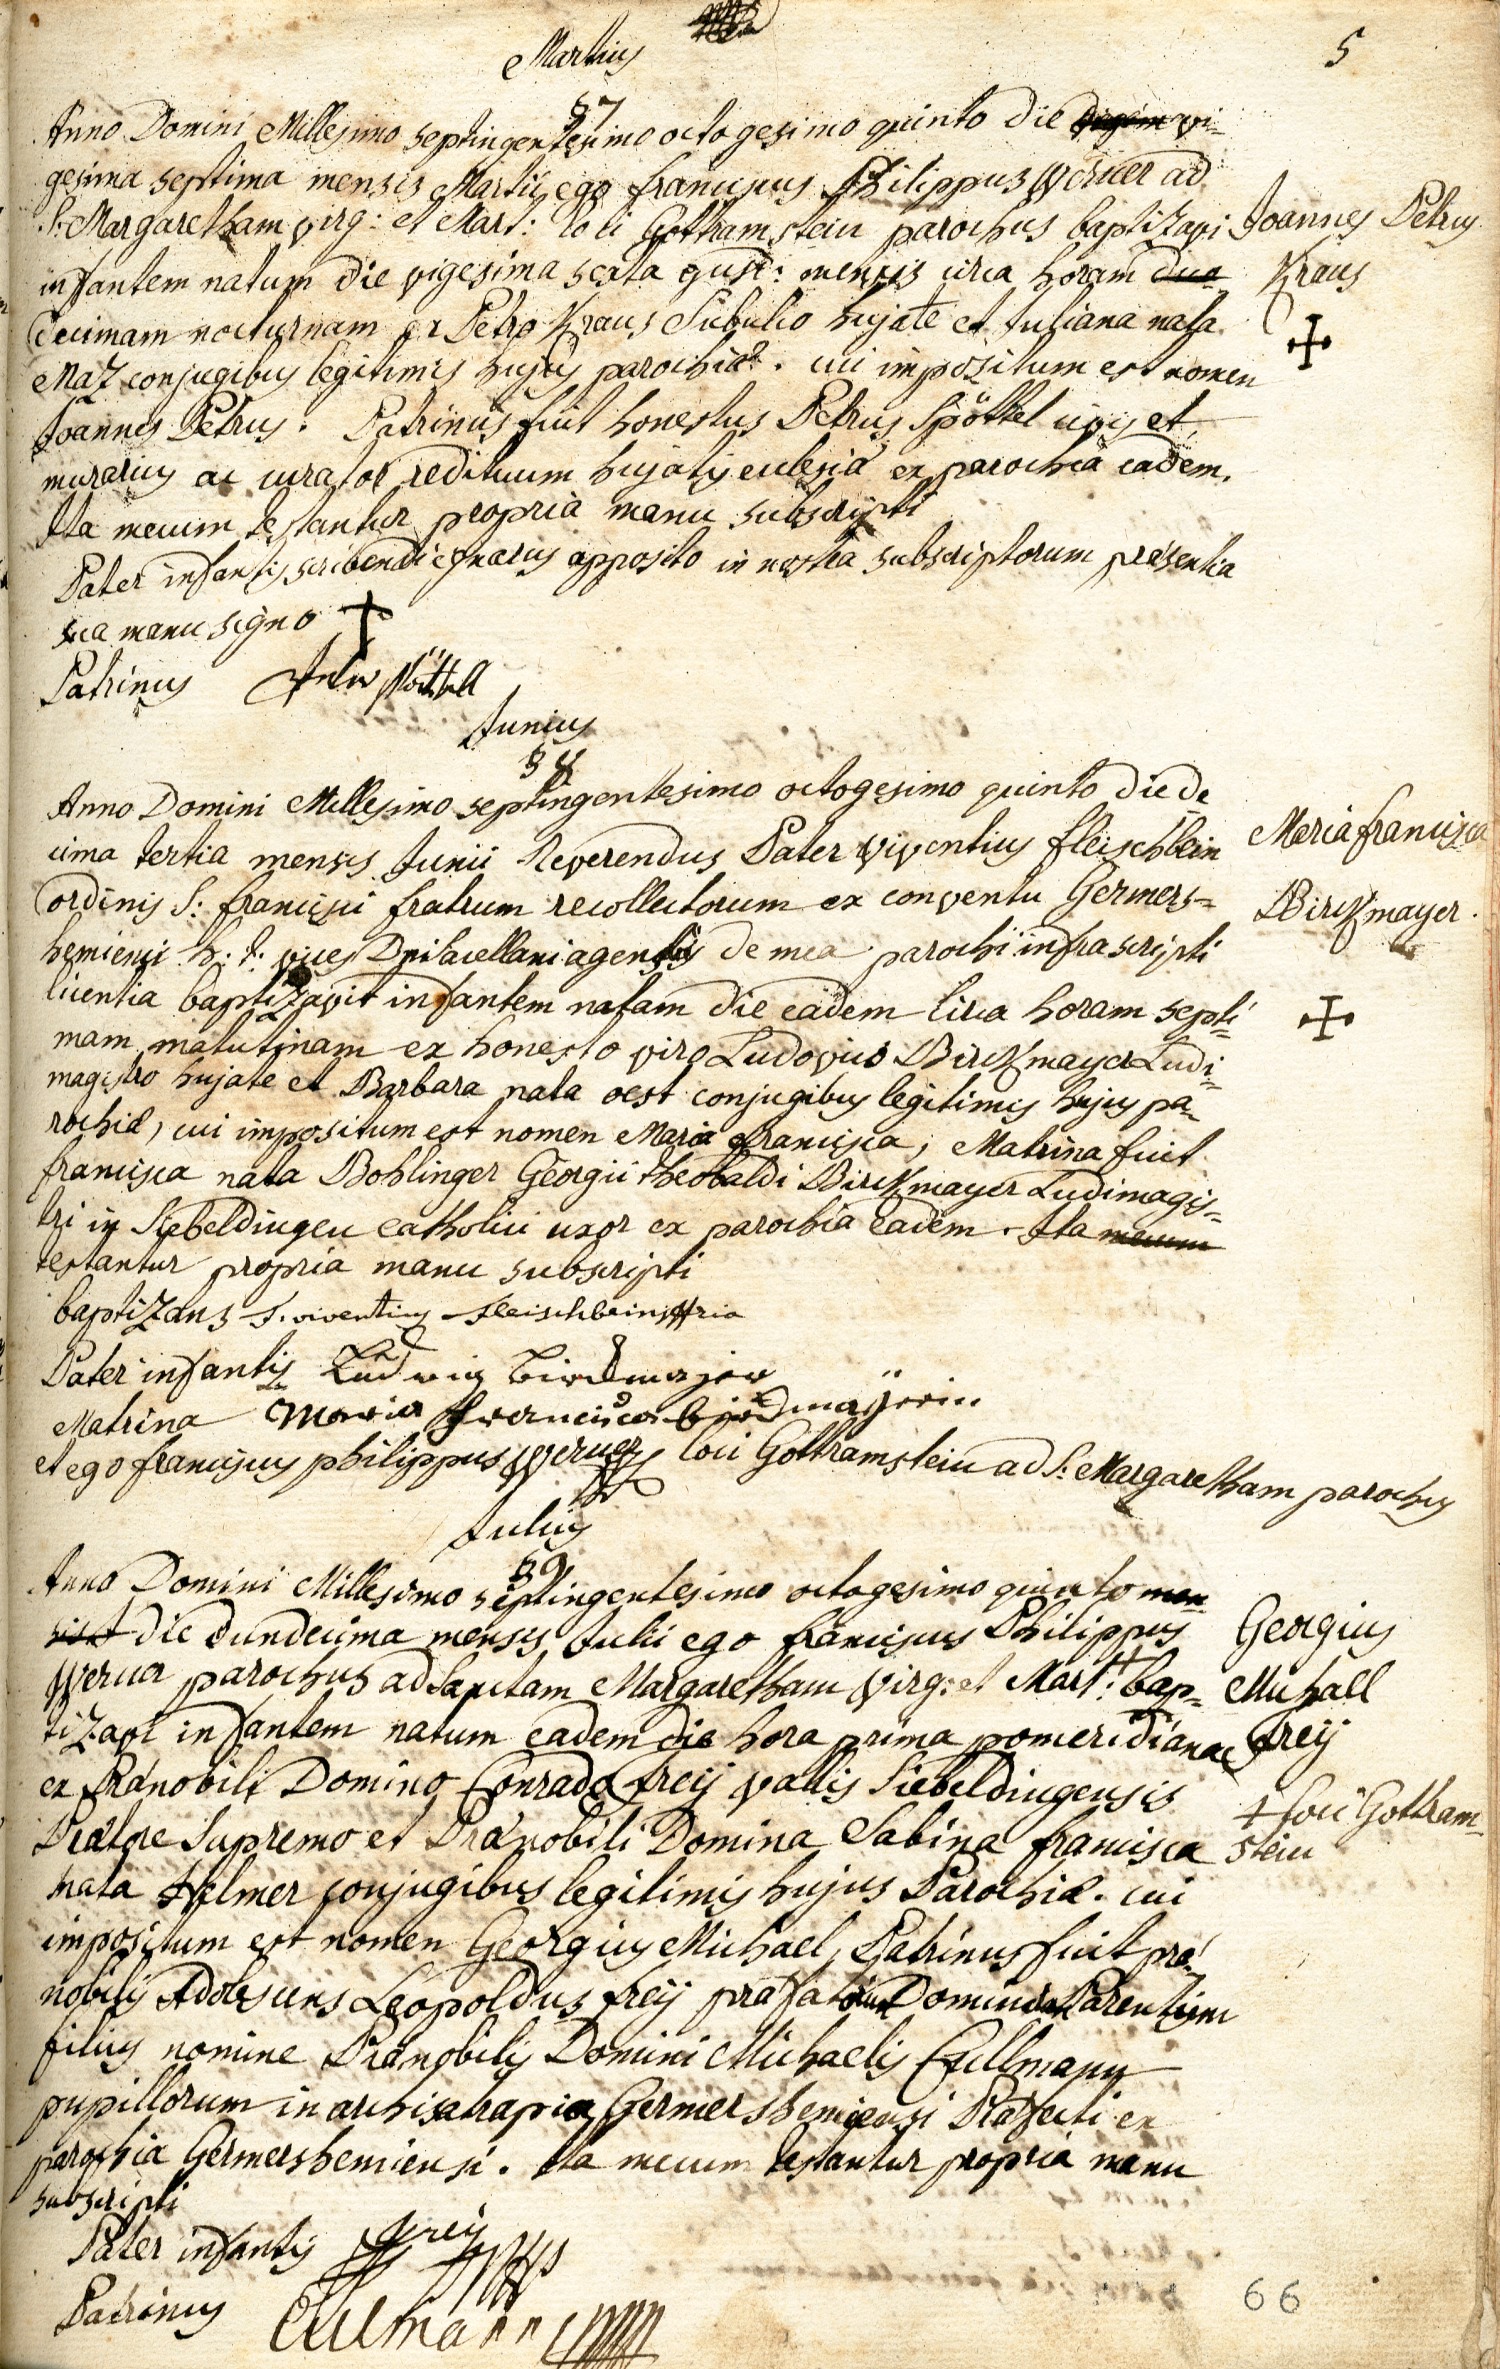 Martius
5
§ 7
Anno Domini Millesimo septingentesimo octogesimo quinto die vi-
gesima septima mensis Martii ego franciscus Philippus Werner ad
S: Margaretham virg: et Mart: loci Gottramstein parochus baptizavi
Joannes Petrus
infantem natum die vigesima sexta ejusd: mensis circa horam duo
Kraus
decimam nocturnam ex Petro Kraus Subulco hujate et Juliana nata
Maz conjugibus legitimis hujus parochiæ. cui impositum est nomen
Joannes Petrus. Patrinus fuit honestus Petrus Spöttel civis et
murarius ac curator redituum hujatis ecclesiæ ex parochia eadem.
Ita mecum testantur propria manu subscripti
Pater infantis scribendi ignarus apposito in nostra subscriptorum præsentia
sua manu signo +
Patrinus
Junius
§ 8
Anno Domini Millesimo septingentesimo octogesimo quinto die de
cima tertia mensis Junii Reverendus Pater viventius fleischbein
Maria francisca
ordinis S: francisci fratrum recollectorum ex conventu Germers=
Birckmayer.
hemiensi h: t: vices Dni sacellani agentis de mea parochi infra scripti
licentia baptizavit infantem natam die eadem circa horam septi=
mam matutinam ex honesto viro Ludovico Birckmayer Ludi=
magistro hujate et Barbara nata oest conjugibus legitimis hujus pa=
rochiæ, cui impositum est nomen Maria francisca, Matrina fuit
francisca nata Bohlinger Georgii theobaldi Birckmayer Ludimagis=
tri in Siebeldingen catholici uxor ex parochia eadem. Ita mecum
testantur propria manu subscripti
baptizans F. viventius Fleischbein
Pater infantis Ludwig Birckmajer
Matrina Maria Francisca Birckmaÿerin
et ego franciscus philippus Werner loci Gottramstein ad S: Margaretham parochus
Julius
§ 9
Anno Domini Millesimo septingentesimo octogesimo quinto men
die undecima mensis Julii ego franciscus Philippus
Georgius
Werner parochus ad Sanctam Margaretham virg: et Mart: + bap=
Michaël
tizavi infantem natum eadem die hora prima pomeridiana
freÿ
ex Prænobili Domino Conrado freÿ vallis Siebeldingensis
+ loci Gottram=
Prætore Supremo et Prænobili Domina Sabina francisca
stein
nata Helmer conjugibus legitimis hujus Parochiæ. cui
impositum est nomen Georgius Michael, Patrinus fuit præ=
nobilis Adolescens Leopoldus freÿ præfatorum Dominorum Parentum
filius nomine Prænobilis Domini Michaelis Cullmann
pupillorum in archisatrapia Germershemiensi Præfecti ex
parochia Germershemiensi. Ita mecum testantur propria manu
subscripti
Pater infantis Freÿ
Patrinus Cullmann
66